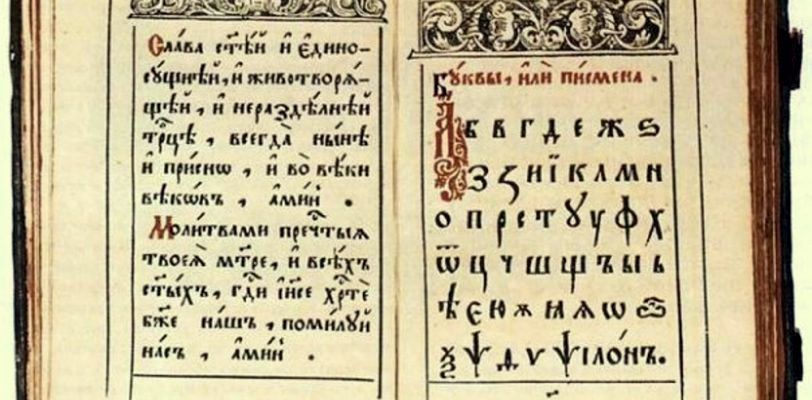 Сла́ва ст҃ѣ́й и҆ є҆дино-
сꙋ́щнѣй, и҆ животворѧ́-
щей, и҆ нераздѣ́лнѣй
трⷪ҇цѣ, всегда̀ ны́нѣ
и҆ при́снѡ, и҆ во̀ вѣ́ки
вѣкѡ́въ, а҆ми́нь.
Моли́твами пречⷭ҇тыѧ
твоеѧ̀ мт҃ре, и҆ всѣ́хъ
ст҃ы́хъ, гдⷭ҇и і҆и҃се хрⷭ҇тѐ
бж҃е на́шъ, поми́лꙋй
на́съ, а҆ми́нь.
Бꙋ́квы, и҆лѝ пи́смена.
А Б В Г Д Е Ж Ѕ
З Ꙁ И Ї К Л М Н
О П Р С Т Ꙋ У Ф Х
Ѿ Ц Ч Ш Щ Ъ Ы Ь
Ѣ Є Ю Ѫ Ѧ Ѡ
Ѯ Ѱ Ѵ ѱіло́нъ.